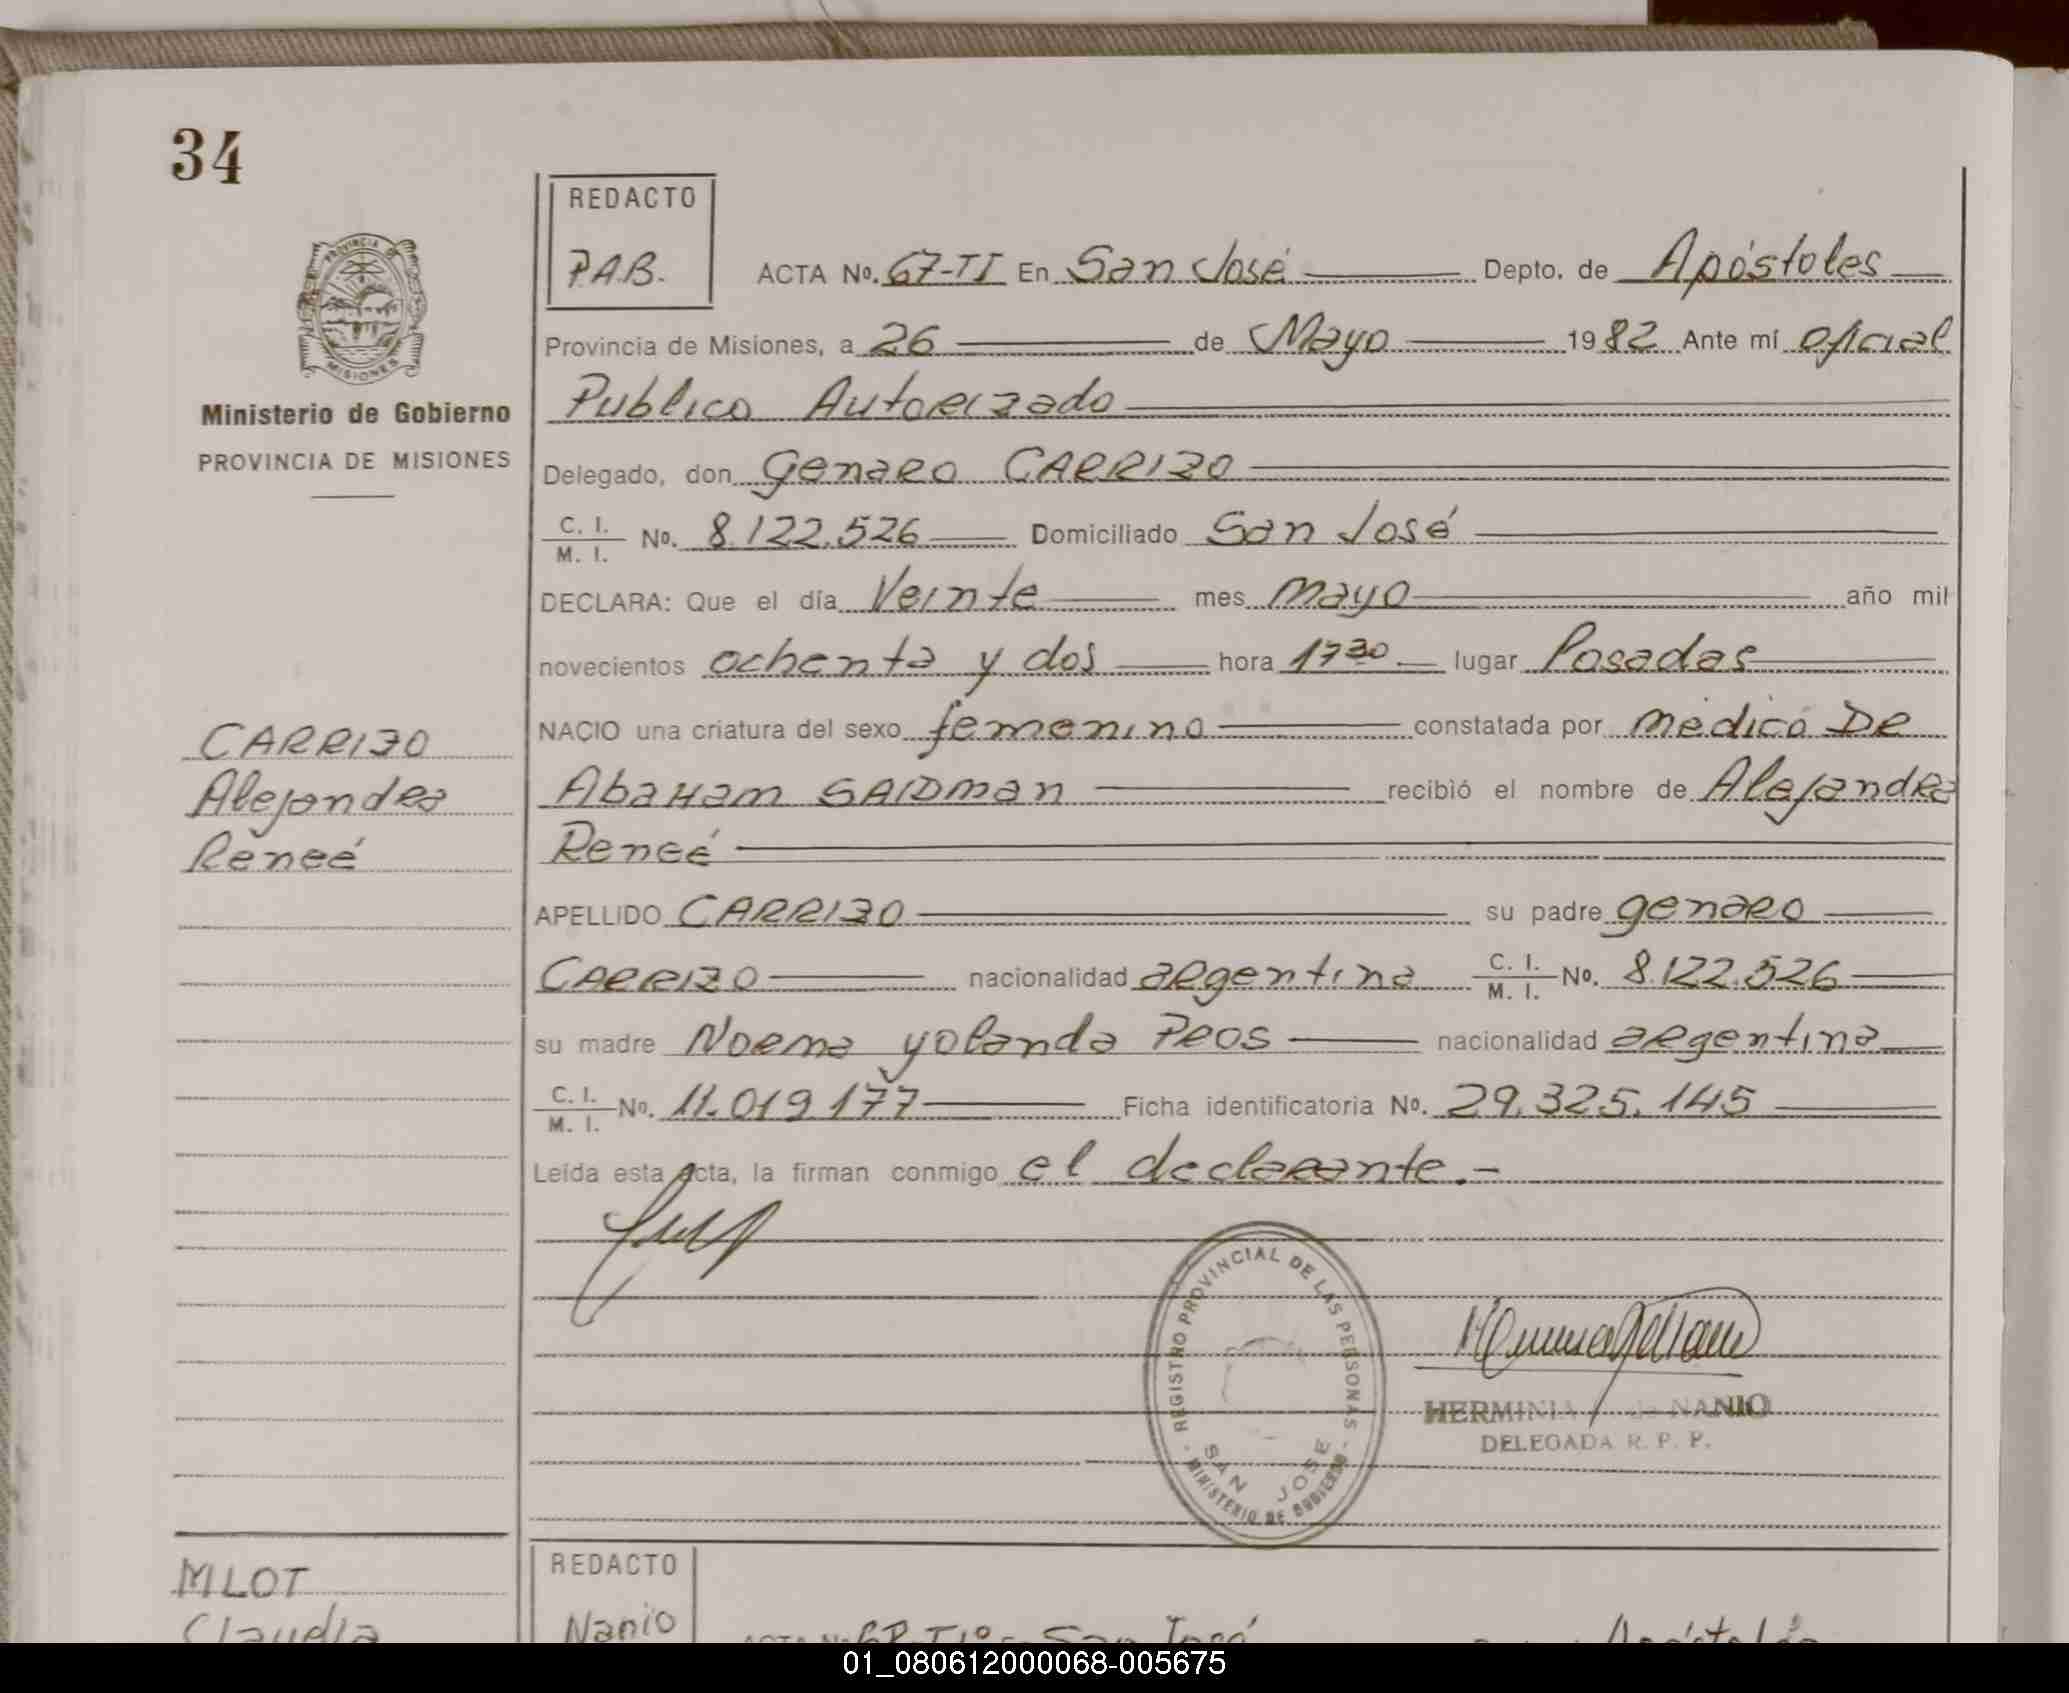 34
REDACTO
P.A.B.
ACTA No. 67-TI En San José Depto. de Apóstoles
Provincia de Misiones, a 26 de Mayo 1982 Ante mí oficial
Publico Autorizado
Ministerio de Gobierno
PROVINCIA DE MISIONES
Delegado, don Genaro CARRIZO
C. I.
M. I. No. 8.122.526 Domiciliado San José
DECLARA: Que el día Veinte mes mayo año mil
novecientos ochenta y dos hora 1730 lugar Posadas
NACIO una criatura del sexo femenino constatada por médico DR
Abaham SAIDMAN recibió el nombre de Alejandra
Reneé
CARRIZO
Alejandra
Reneé
APELLIDO CARRIZO su padre genaro
CARRIZO nacionalidad argentina C. I. M. I. No. 8.122.526
su madre Norma yolanda PROS nacionalidad argentina
C. I.
M. I. No. 11.019 177 Ficha identificatoria No. 29.325.145
Leída esta acta, la firman conmigo el declarante.-
REGISTRO PROVINCIAL DE LAS PERSONAS
SAN JOSE
MINISTERIO DE GOBIERNO
HERMINIA de NANIO
DELEGADA R. P. P.
MLOT
Claudia
REDACTO
Nanio
San José
01_080612000068-005675